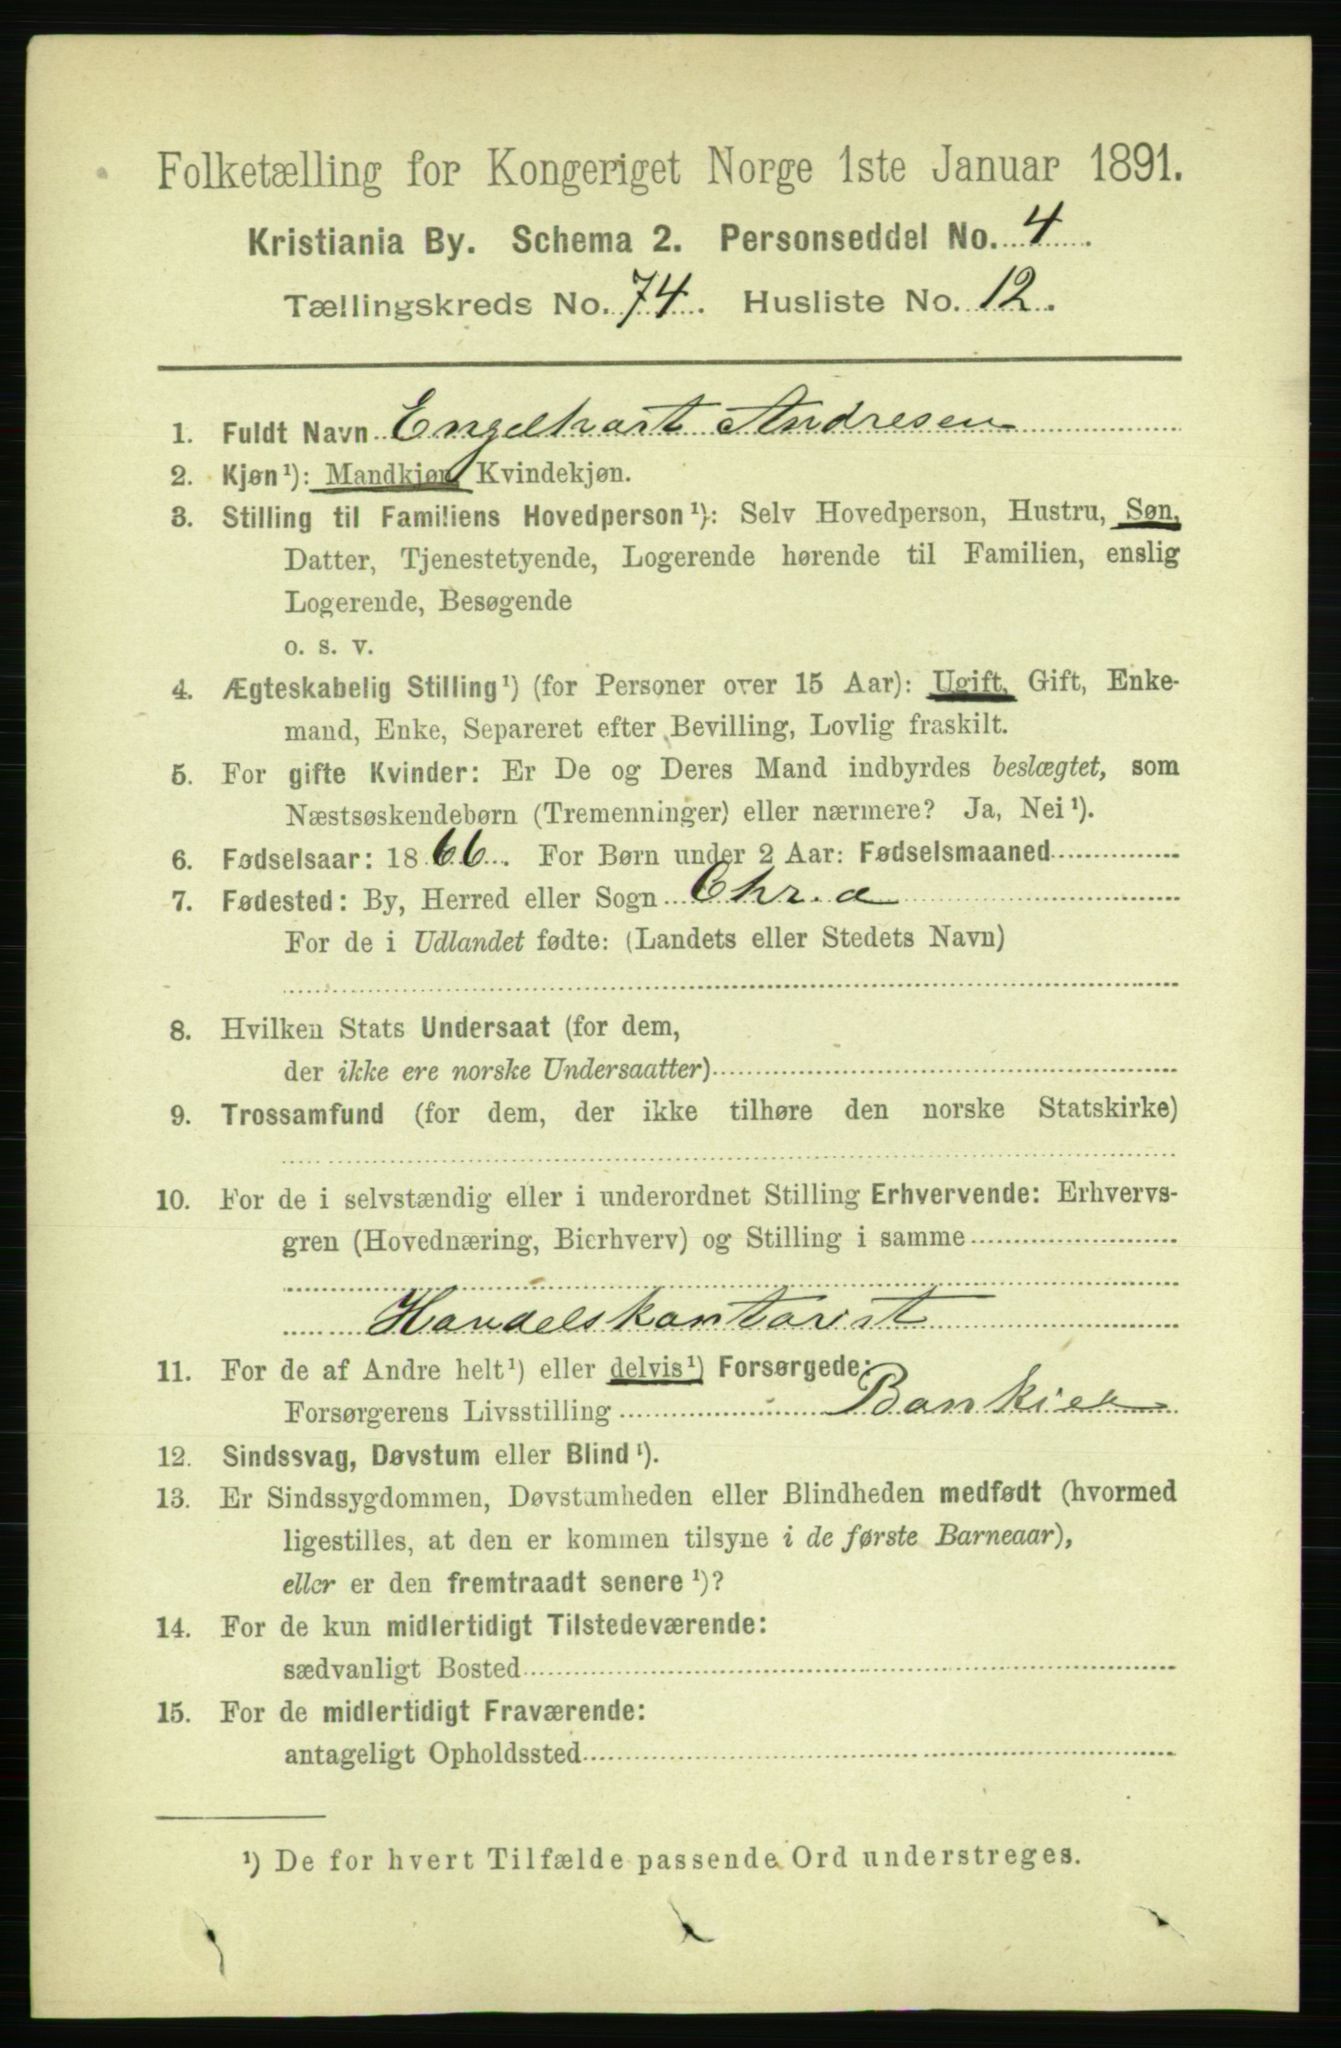 Folketælling for Kongeriget Norge 1ste Januar 1891.
Kristiania By. Schema 2. Personseddel No. 4.
Tællingskreds No. 74. Husliste No. 12.
1. Fuldt Navn Engelhart Andresen
2. Kjøn¹): Mandkjøn Kvindekjøn.
3. Stilling til Familiens Hovedperson¹): Selv Hovedperson, Hustru, Søn,
Datter, Tjenestetyende, Logerende hørende til Familien, enslig
Logerende, Besøgende
o. s. v.
4. Ægteskabelig Stilling¹) (for Personer over 15 Aar): Ugift, Gift, Enke-
mand, Enke, Separeret efter Bevilling, Lovlig fraskilt.
5. For gifte Kvinder: Er De og Deres Mand indbyrdes beslægtet, som
Næstsøskendebørn (Tremenninger) eller nærmere? Ja, Nei¹).
6. Fødselsaar: 1866. For Børn under 2 Aar: Fødselsmaaned
7. Fødested: By, Herred eller Sogn Chr.a
For de i Udlandet fødte: (Landets eller Stedets Navn)
8. Hvilken Stats Undersaat (for dem,
der ikke ere norske Undersaatter)
9. Trossamfund (for dem, der ikke tilhøre den norske Statskirke)
10. For de i selvstændig eller i underordnet Stilling Erhvervende: Erhvervs-
gren (Hovednæring, Bierhverv) og Stilling i samme
Handelskontorist
11. For de af Andre helt¹) eller delvis¹) Forsørgede:
Forsørgerens Livsstilling Bankier
12. Sindssvag, Døvstum eller Blind¹).
13. Er Sindssygdommen, Døvstumheden eller Blindheden medfødt (hvormed
ligestilles, at den er kommen tilsyne i de første Barneaar),
eller er den fremtraadt senere¹)?
14. For de kun midlertidigt Tilstedeværende:
sædvanligt Bosted
15. For de midlertidigt Fraværende:
antageligt Opholdssted
¹) De for hvert Tilfælde passende Ord understreges.